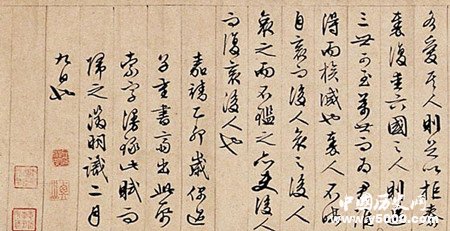 各愛其人則足以拒秦
秦復愛六國之人則
三世可至萬世而為君
得而族滅也秦人不暇
自哀而後人哀之後人
哀之而不鑑之亦使後人
而復哀後人也
嘉靖乙卯歲偶過
子重書齋出此
索字漫錄此賦而
歸之徵明識二月
九日也
中国历史网
www.y5000.com